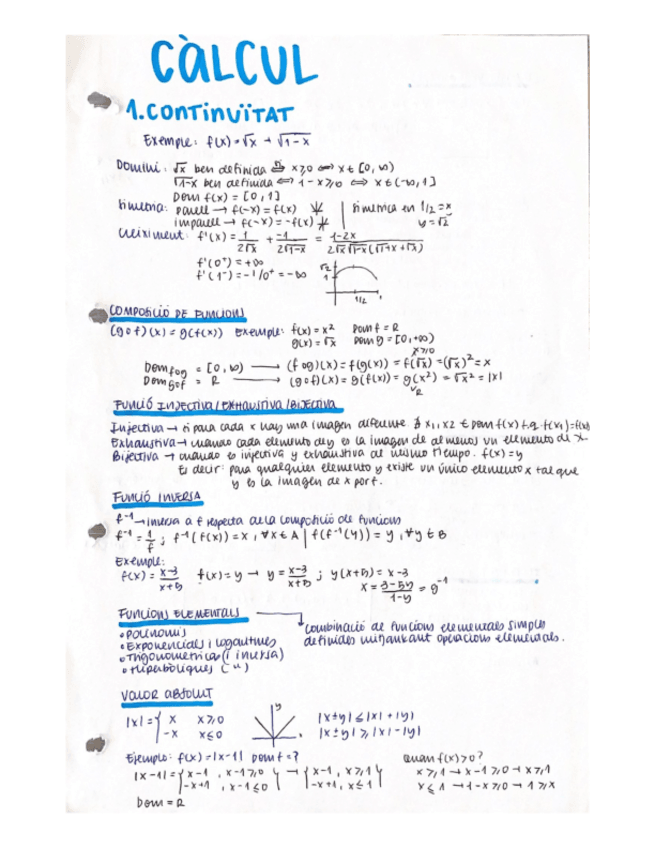 CÀLCUL
1. CONTINUÏTAT
Exemple: f(x) = √x + √1-x
Domini: √x ben definida ⇔ x ≥ 0 ⇔ x ∈ [0, ∞)
√1-x ben definida ⇔ 1-x ≥ 0 ⇔ x ∈ (-∞, 1]
Dom f(x) = [0, 1]
Simetria: parell → f(-x) = f(x) | simetria en 1/2 = x
imparell → f(-x) = -f(x) y = √2
Creixement: f'(x) = 1/2√x + -1/2√1-x = 1-2x/2√x√1-x(√1-x+√x)
f'(0⁺) = +∞
f'(1⁻) = -1/0⁺ = -∞
√2
1
1/2
1
COMPOSICIÓ DE FUNCIONS
(g∘f)(x) = g(f(x)) Exemple: f(x) = x² Dom f = R
g(x) = √x Dom g = [0, +∞)
x ≥ 0
Dom fog = [0, ∞) → (f∘g)(x) = f(g(x)) = f(√x) = (√x)² = x
Dom gof = R → (g∘f)(x) = g(f(x)) = g(x²) = √x² = |x|
R
FUNCIÓ INJECTIVA/EXHAUSTIVA/BIJECTIVA
Injectiva → si para cada x hay una imagen diferente ∄ x₁, x₂ ∈ dom f(x) t.q. f(x₁) = f(x₂)
Exhaustiva → cuando cada elemento de y es la imagen de almenos un elemento de x
Bijectiva → cuando es injectiva y exhaustiva al mismo tiempo. f(x) = y
Es decir: para qualquier elemento y existe un único elemento x tal que
y es la imagen de x por f.
FUNCIÓ INVERSA
f⁻¹ → inversa a f respecta de la composició de funcions
f⁻¹ = 1/f ; f⁻¹(f(x)) = x, ∀x ∈ A | f(f⁻¹(y)) = y, ∀y ∈ B
Exemple:
f(x) = x-3/x+5 f(x) = y → y = x-3/x+5 ; y(x+5) = x-3
x = 3-5y/1-y = g⁻¹
FUNCIONS ELEMENTALS
• Polinomis
• Exponencials i logaritmes
• Trigonomètrica (i inversa)
• Hiperbòliques (")
Combinació de funcions elementals simples
definides mitjantçant operacions elementals.
VALOR ABSOLUT
|x| = { x x ≥ 0
-x x ≤ 0
y
|x±y| ≤ |x| + |y|
|x±y| ≥ |x| - |y|
Ejemplo: f(x) = |x-1| Dom f = ?
|x-1| = { x-1, x-1 ≥ 0 } → { x-1, x ≥ 1 }
-x+1, x-1 ≤ 0 -x+1, x ≤ 1
Dom = R
Quan f(x) > 0?
x ≥ 1 → x-1 ≥ 0 → x ≥ 1
x ≤ 1 → 1-x ≥ 0 → 1 ≥ x